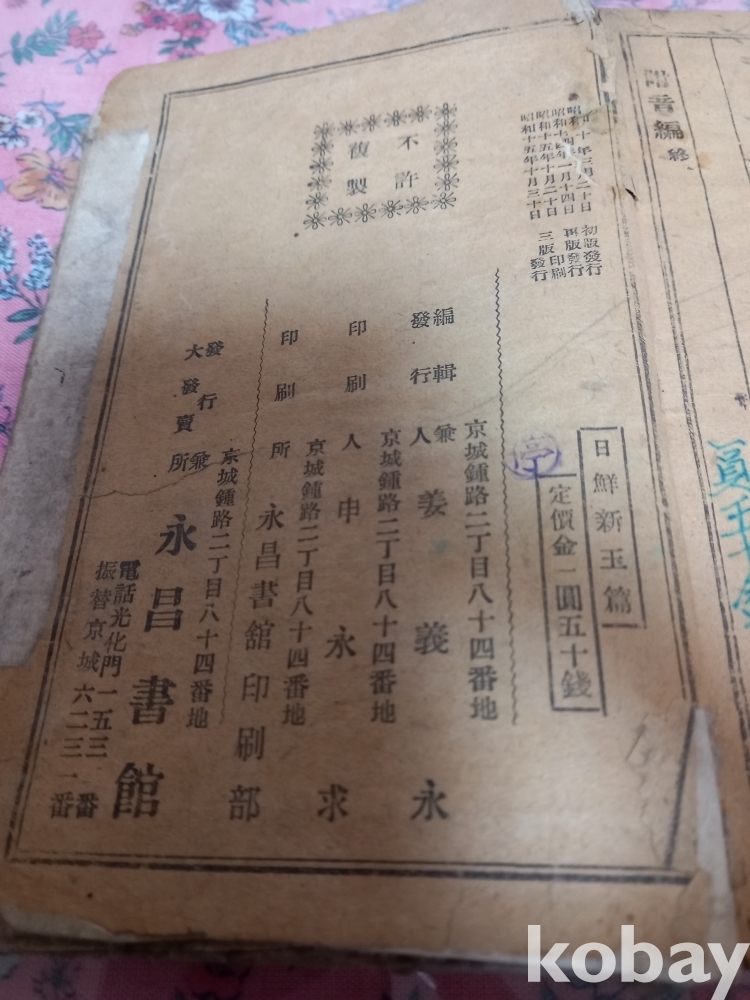 諧音編 終
昭和十年三月二十日 初版發行
昭和十四年一月十四日 再版發行
昭和十五年十月二十日 三版印刷
昭和十五年十月三十日 三版發行
不許
複製
日鮮新玉篇
定價金一圓五十錢
京城鍾路二丁目八十四番地
編輯兼
發行人 姜義永
京城鍾路二丁目八十四番地
印刷人 申永求
京城鍾路二丁目八十四番地
印刷所 永昌書舘印刷部
京城鍾路二丁目八十四番地
發行兼
大發賣所 永昌書館
電話光化門一五三一番
振替京城六二三一番
kobay